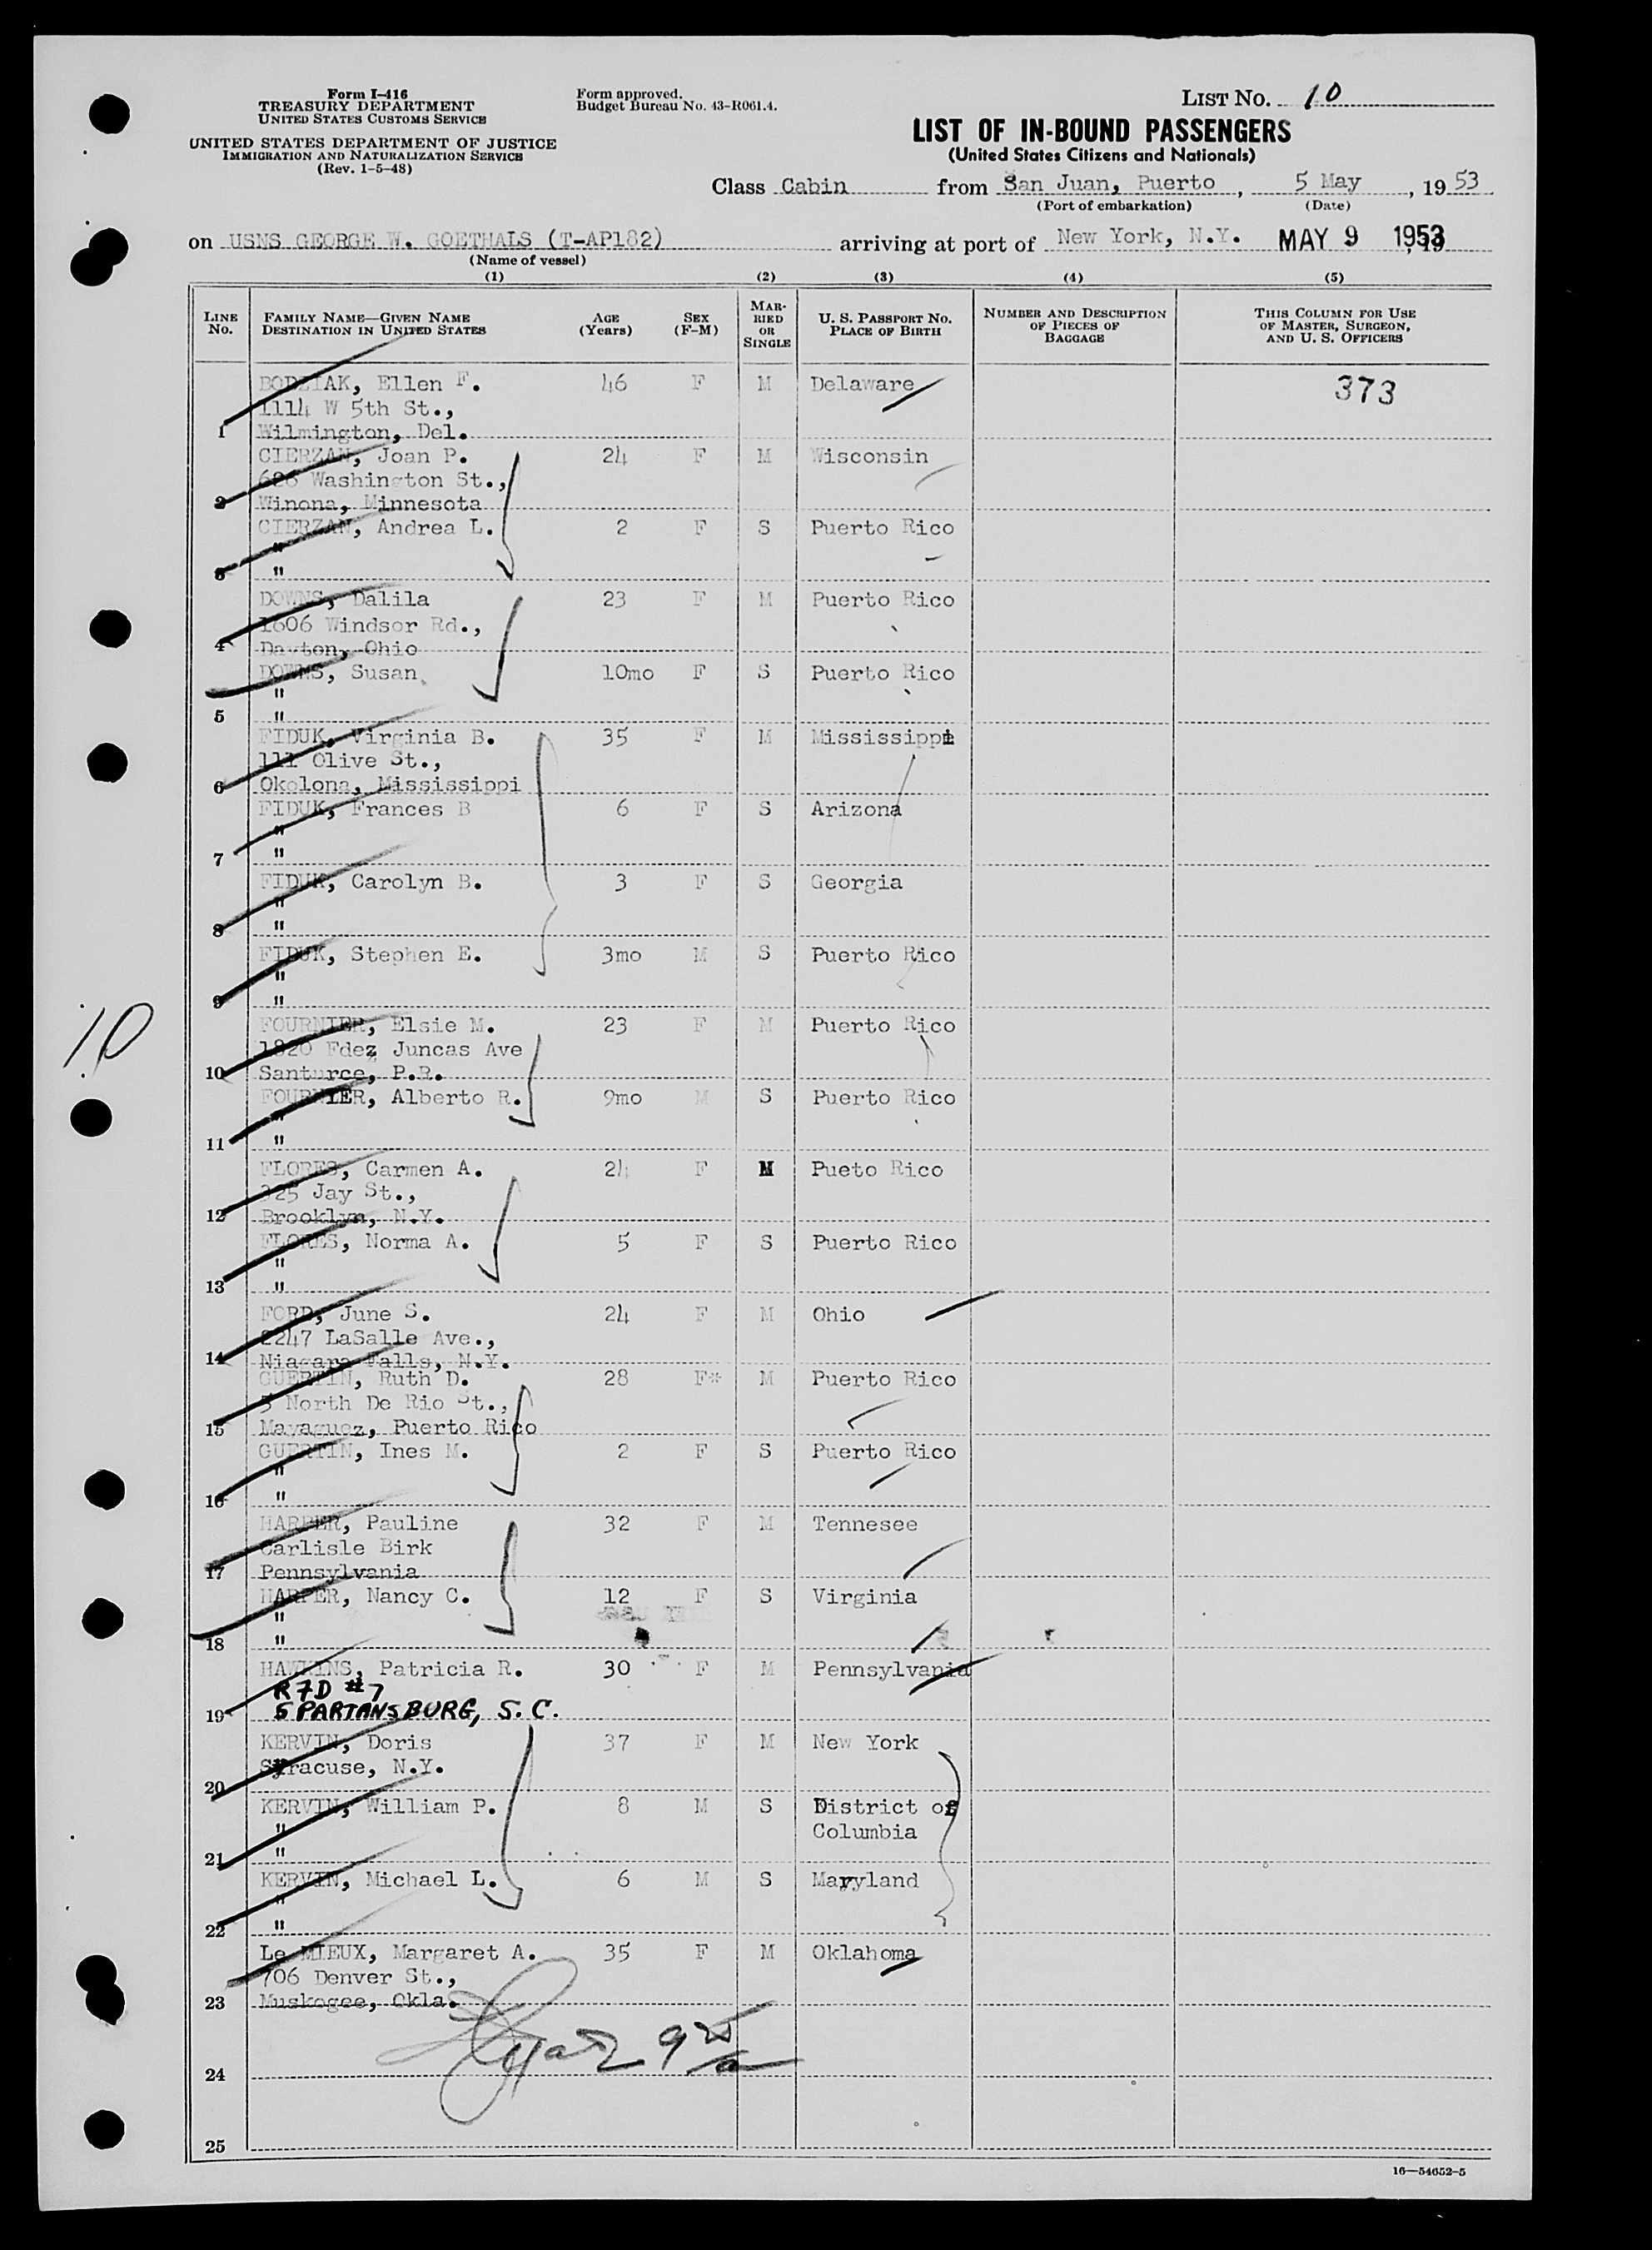 Form I-416
TREASURY DEPARTMENT
UNITED STATES CUSTOMS SERVICE
UNITED STATES DEPARTMENT OF JUSTICE
IMMIGRATION AND NATURALIZATION SERVICE
(Rev. 1-5-48)
Form approved.
Budget Bureau No. 43-R061.4.
LIST No. 10
LIST OF IN-BOUND PASSENGERS
(United States Citizens and Nationals)
Class Cabin from San Juan, Puerto, 5 May, 1953
(Port of embarkation) (Date)
on USNS GEORGE W. GOETHALS (T-AP182) arriving at port of New York, N.Y. MAY 9 1953
(Name of vessel)
(1) (2) (3) (4) (5)
LINE No. FAMILY NAME—GIVEN NAME DESTINATION IN UNITED STATES AGE (Years) SEX (F-M) MARRIED OR SINGLE U. S. PASSPORT No. PLACE OF BIRTH NUMBER AND DESCRIPTION OF PIECES OF BAGGAGE THIS COLUMN FOR USE OF MASTER, SURGEON, AND U. S. OFFICERS
BODZIAK, Ellen F. 46 F M Delaware 373
1114 W 5th St.,
1 Wilmington, Del.
CIERZAN, Joan P. 24 F M Wisconsin
626 Washington St.,
2 Winona, Minnesota
CIERZAN, Andrea L. 2 F S Puerto Rico
"
3 "
DOWNS, Dalila 23 F M Puerto Rico
1606 Windsor Rd.,
4 Dayton, Ohio
DOWNS, Susan 10mo F S Puerto Rico
"
5 "
FIDUK, Virginia B. 35 F M Mississippi
111 Olive St.,
6 Okolona, Mississippi
FIDUK, Frances B 6 F S Arizona
"
7 "
FIDUK, Carolyn B. 3 F S Georgia
"
8 "
FIDUK, Stephen E. 3mo M S Puerto Rico
"
9 "
10
FOURNIER, Elsie M. 23 F M Puerto Rico
1820 Fdez Juncas Ave
10 Santurce, P.R.
FOURNIER, Alberto R. 9mo M S Puerto Rico
"
11 "
FLORES, Carmen A. 24 F M Pueto Rico
325 Jay St.,
12 Brooklyn, N.Y.
FLORES, Norma A. 5 F S Puerto Rico
"
13 "
FORD, June S. 24 F M Ohio
2247 LaSalle Ave.,
14 Niagara Falls, N.Y.
GUERTIN, Ruth D. 28 F* M Puerto Rico
3 North De Rio St.,
15 Mayaguez, Puerto Rico
GUERTIN, Ines M. 2 F S Puerto Rico
"
16 "
HARPER, Pauline 32 F M Tennesee
Carlisle Birk
17 Pennsylvania
HARPER, Nancy C. 12 F S Virginia
"
18 "
HAWKINS, Patricia R. 30 F M Pennsylvania
R7D #7
19 SPARTANSBURG, S. C.
KERVIN, Doris 37 F M New York
Syracuse, N.Y.
20
KERVIN, William P. 8 M S District of
" Columbia
21 "
KERVIN, Michael L. 6 M S Maryland
"
22 "
Le MIEUX, Margaret A. 35 F M Oklahoma
706 Denver St.,
23 Muskogee, Okla.
24
25
16—54652-5